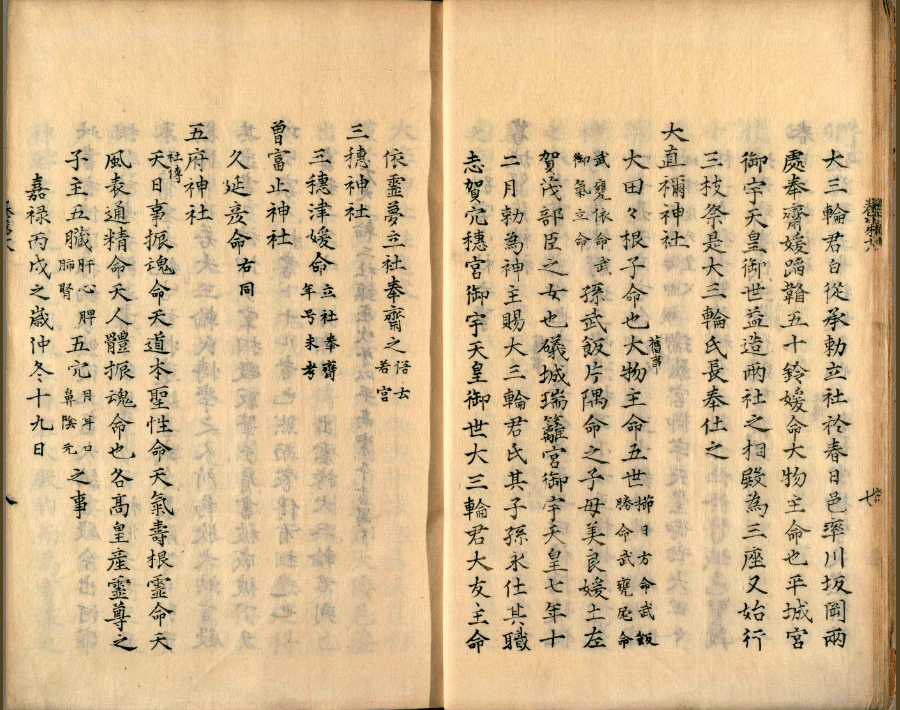 大三輪君白従承勅立社於春日邑率川坂岡兩
處奉齋媛蹈鞴五十鈴媛命大物主命也平城宮
御宇天皇御世益造兩社之相殿為三座又始行
三枝祭是大三輪氏長奉仕之
大直禰神社
大田々根子命也大物主命五世
舊事
櫛日方命武飯
勝命武甕尻命
武甕依命武
御氣立命
孫武飯片隅命之子母美良媛土左
賀茂部臣之女也礒城瑞籬宮御宇天皇七年十
二月勅為神主賜大三輪君氏其子孫永仕其職
志賀穴穗宮御宇天皇御世大三輪君大友主命
依靈夢立社奉齋之
悟士
若宮
三穗神社
三穗津媛命
立社奉齋
年号未考
曽富止神社
久延彦命
右同
五府神社
社傳
天日事振魂命天道本聖性命天氣壽根靈命天
風表通精命天人體振魂命也各高皇産靈尊之
子主五臟
肝心脾
肺腎
五穴
目耳口
鼻陰元
之事
嘉禄丙戌之歳仲冬十九日